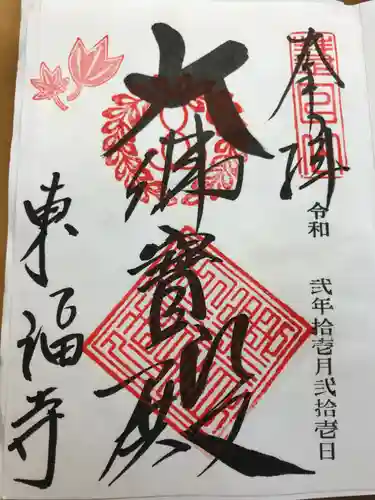 奉拝
令和 弐年拾壱月弐拾壱日
大佛寳殿
東福寺